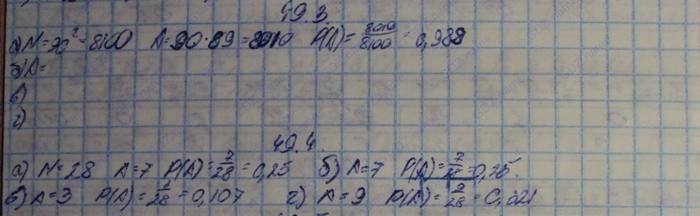 49.3.
а) N=90²=8100 A=90·89=8010 P(A)=8010/8100=0,989
б) A=
в)
г)
49.4.
а) N=28 A=7 P(A)=7/28=0,25 б) A=7 P(A)=7/28=0,25.
в) A=3 P(A)=3/28=0,107 г) A=9 P(A)=9/28=0,321